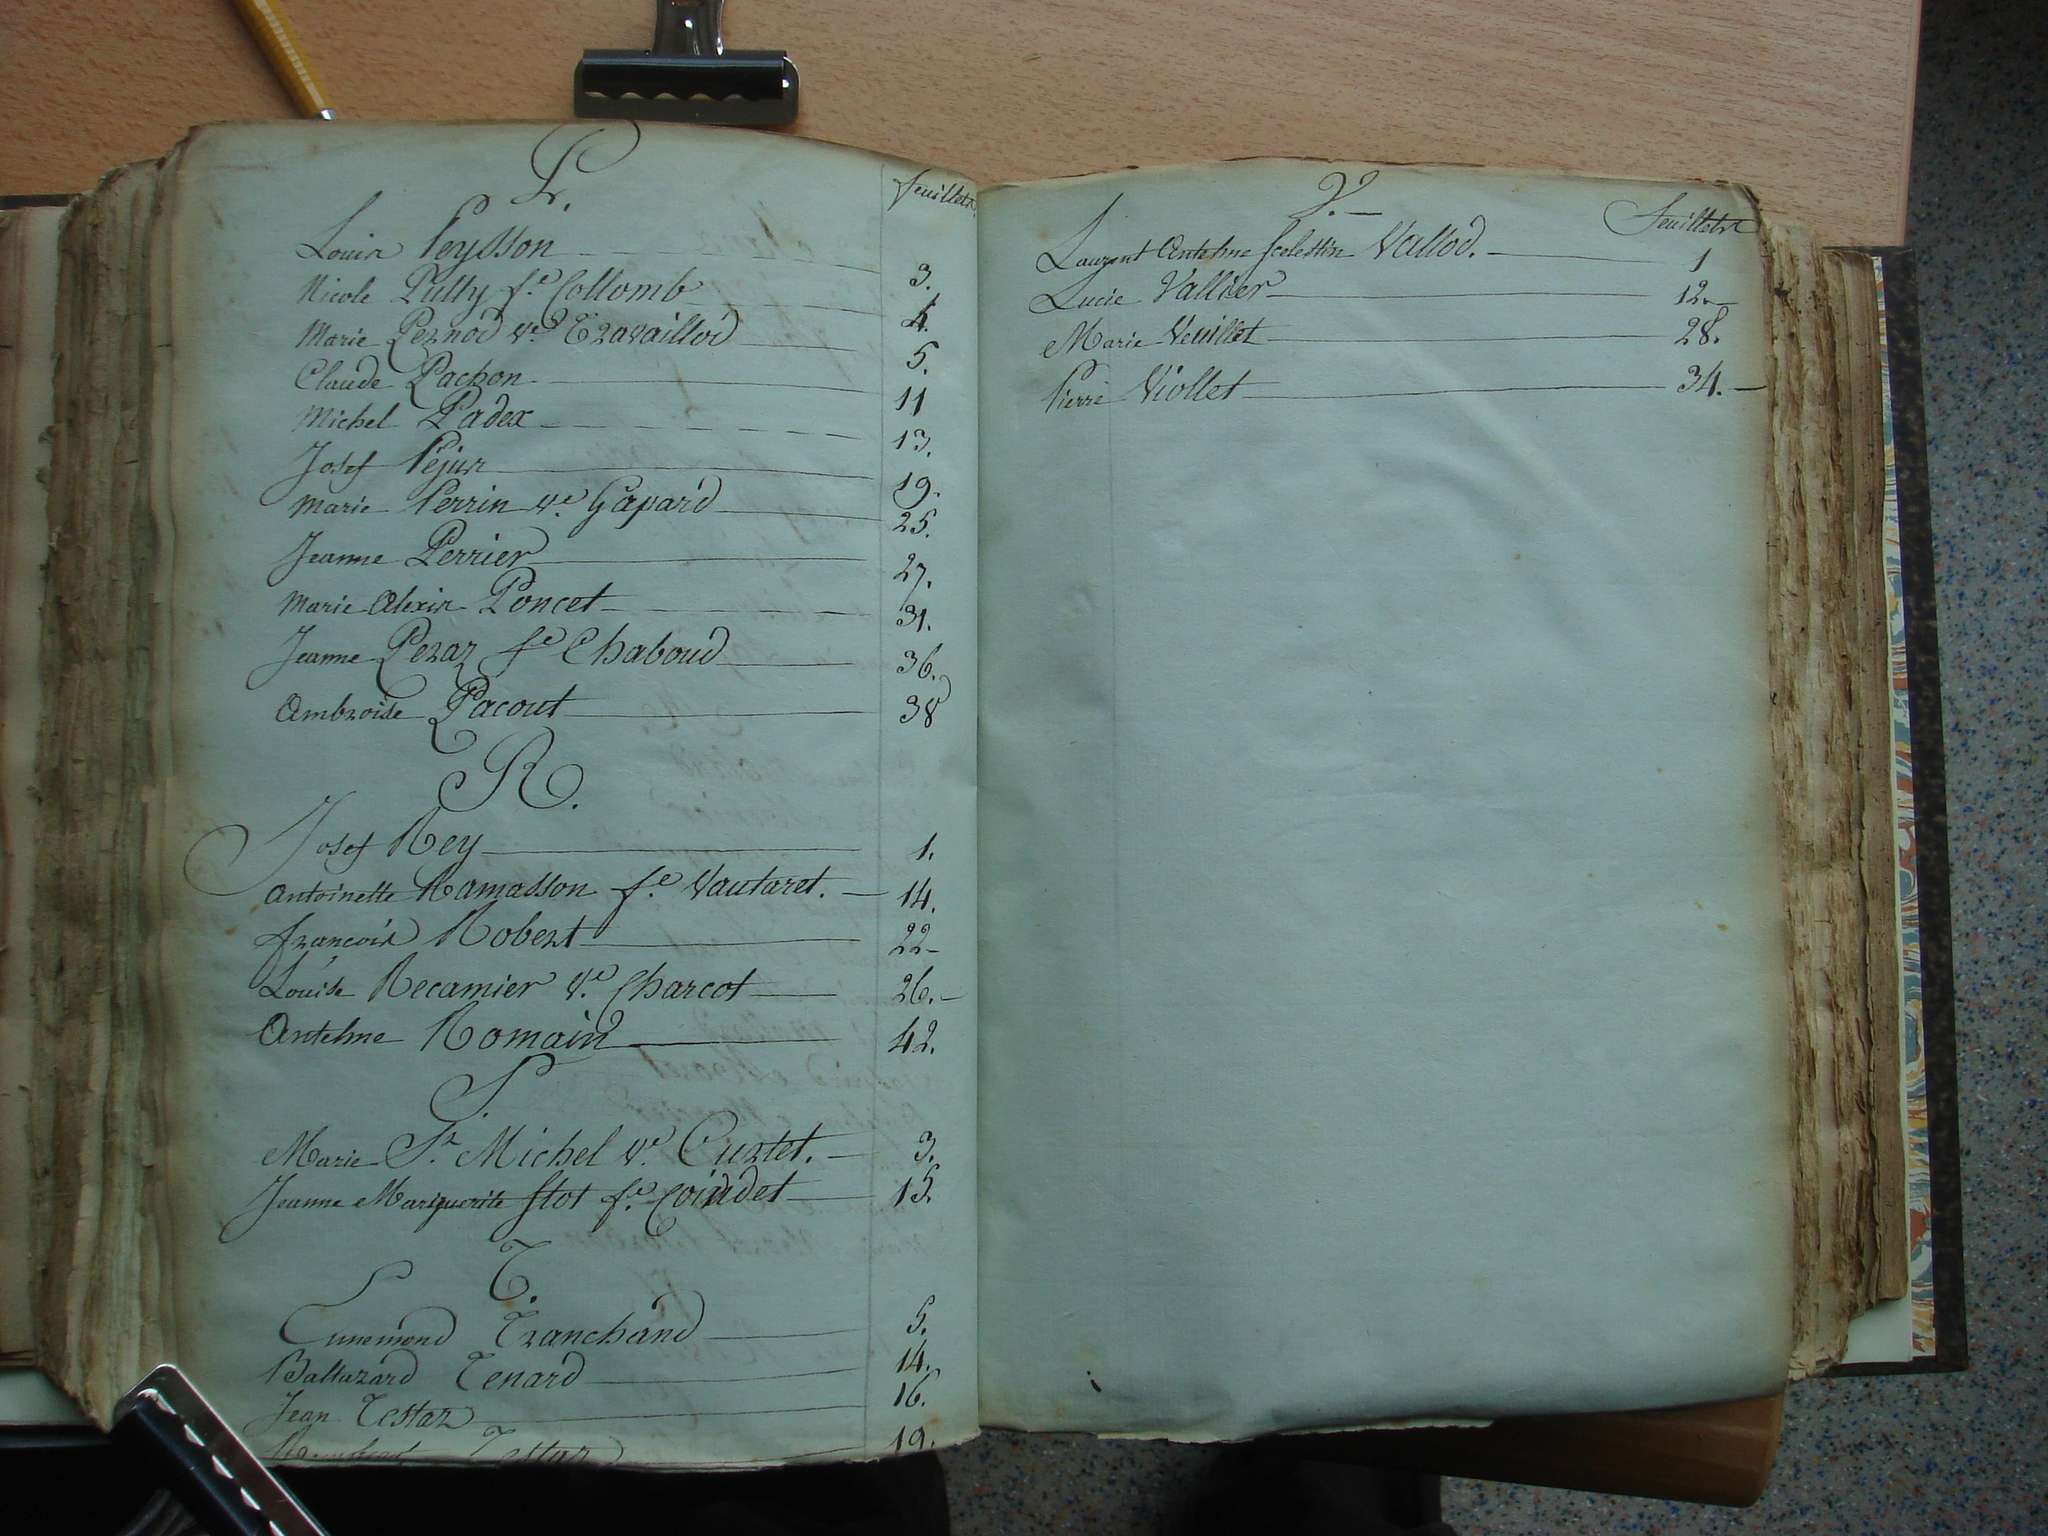 P.
feuillets.
Louis Peysson 3.
Nicole Pully f.e Collomb 4.
Marie Pernod v.e Travaillod 5.
Claude Pachon 11
Michel Padex 13.
Josef Péjus 19.
Marie Perrin v.e Gapard 25.
Jeanne Perrier 27.
Marie Alexis Poncet 31.
Jeanne Peraz f.e Chaboud 36.
Ambroise Pacout 38
R.
Josef Rey 1.
Antoinette Ramasson f.e Vautaret. 14.
françois Robert 22
Louise Recamier V.e Charcot 26.
Antelme Romain 42.
S.
Marie St. Michel v.e Curtet. 3.
Jeanne Marguerite Stot f.e Coindet 15.
T.
Ennemond Tranchand 5.
Baltazard Tenard 14.
Jean Testaz 16.
Testaz 19.
V.
Feuillets
Laurent Antelme Scelestin Vallod. 1
Lucie Vallier 12.
Marie Veuillet 28.
Pierre Viollet 34.